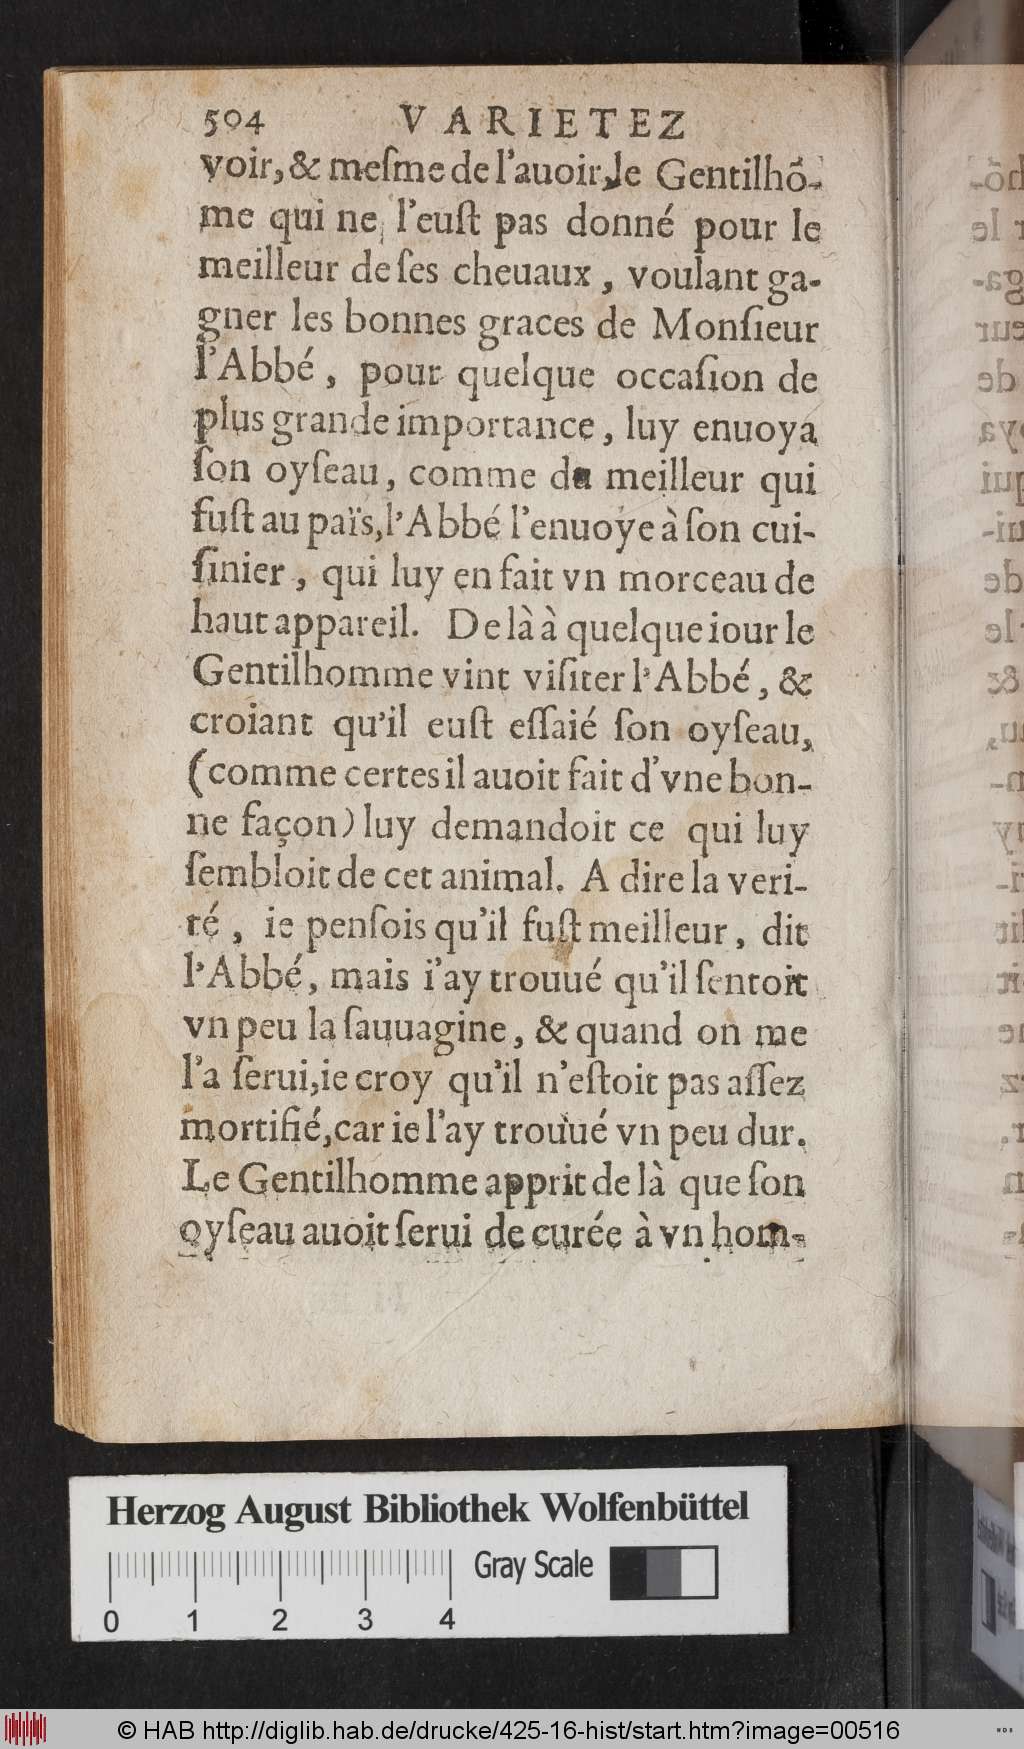 504 VARIETEZ
voir, & meſme de l'auoir, le Gentilhõ-
me qui ne l'euſt pas donné pour le
meilleur de ſes cheuaux, voulant ga-
gner les bonnes graces de Monſieur
l'Abbé, pour quelque occaſion de
plus grande importance, luy enuoya
ſon oyſeau, comme du meilleur qui
fuſt au païs, l'Abbé l'enuoye à ſon cui-
ſinier, qui luy en fait vn morceau de
haut appareil. De là à quelque iour le
Gentilhomme vint viſiter l'Abbé, &
croiant qu'il euſt eſſaié ſon oyſeau,
(comme certes il auoit fait d'vne bon-
ne façon) luy demandoit ce qui luy
ſembloit de cet animal. A dire la veri-
té, ie penſois qu'il fuſt meilleur, dit
l'Abbé, mais i'ay trouué qu'il ſentoit
vn peu la ſauuagine, & quand on me
l'a ſerui, ie croy qu'il n'eſtoit pas aſſez
mortifié, car ie l'ay trouué vn peu dur.
Le Gentilhomme apprit de là que ſon
oyſeau auoit ſerui de curée à vn hom-
Herzog August Bibliothek Wolfenbüttel
Gray Scale
0 1 2 3 4
© HAB http://diglib.hab.de/drucke/425-16-hist/start.htm?image=00516